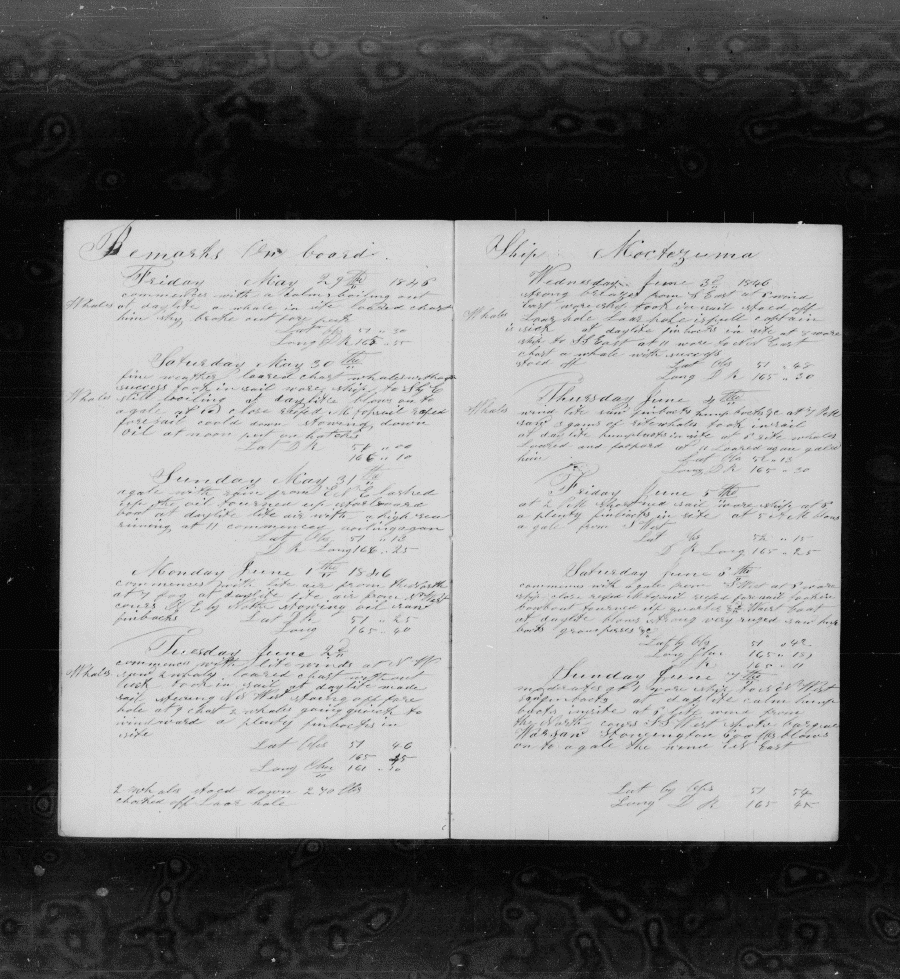 Remarks On board.
Friday May 29th 1846
commences with a calm boiling out
Whales at daylite a whale in site loared chast
him shy broke out for pork
Lat Obs 51 " 30
Long D R 165 " 55
Saturday May 30th
fine weather loared chast whales without
success took in sail wore ship to
Whales still boiling at daylite blows on to
a gale at 10 close reefed M topsail reefed
foresail coold down stowing down
oil at noon put on hatches
Lat D R 51 " 00
166 " 10
Sunday May 31th
a gale with rain from lashed
up the oil tourned up starboard
boat at daylite lite air with a high sea
runing at 11 commences boiling again
Lat Obs 51 " 13
D R Long 166 " 25
Monday June 1th 1846
commences with lite air from the North
at 7 fog at daylite lite air from N West
cours by Nothe stowing oil saw
finbacks Lat D R 51 " 25
Long 165 " 40
Tuesday June 2d
commences with lite winds at N W
Whales saw 2 whals loared chast without
luck took in sail at daylite made
sail stearing West
hole at 9 chast 2 whales going quick to
windward a plenty finbacks in
site
Lat Obs 51 46
165 45
Long Chro 161 " 30
2 whals stoed down 240 bbs
choked off Laar hole
Ship Moctezuma
Wednesday June 3d 1846
strong brezes from S East at 5 wind
East wore ship took in sail stoed off
Whales Laar hole Laar hole is full captain
is sick at daylite finbacks in site at 8 wore
ship to S S East at 11 wore to N East
chast a whale with
stoed off Lat Obs 51 " 48
Long D R 165 " 30
Thursday June 4th
Whales wind lite saw finbacks humpbacks &c at 7 P M
saw 2 gams of ritewhals took in sail
at daylite humpbacks in site at 8 rite whales
Loared and at 11 Loared again galied
him Lat Obs 52 " 13
Long D R 165 " 30
Friday June 5th
at 2 P M shortned sail wore ship at 5
a plenty finbacks in site at 5 A M blows
a gale from S West
Lat Obs 52 " 15
D R Long 165 " 25
Saturday June 6th
commences with a gale from S West at 8 wore
ship close reefed M topsail reefed foresail took in
bowboat tourned up quarter & Waist boat
at daylite blows strong very ruged saw hump
backs grampuses &c
Lat by Obs 51 " 42
Long Chro 165 " 15
D R 165 " 11
Sunday June 7th
moderates at 1 wore ship to West
saw finbacks at daylite calm hump
backs in site at 8 lite wind from
the North cours S S West spoke barque
Warsaw Stonington 600 bbs blows
on to a gale the wind is S East
Lat by Obs 51 54
Long D R 165 45